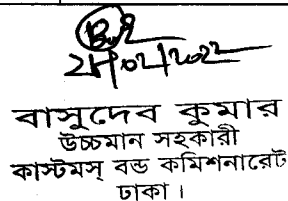 21/02/2022
বাসুদেব কুমার
উচ্চমান সহকারী
কাস্টমস্ বন্ড কমিশনারেট
ঢাকা।